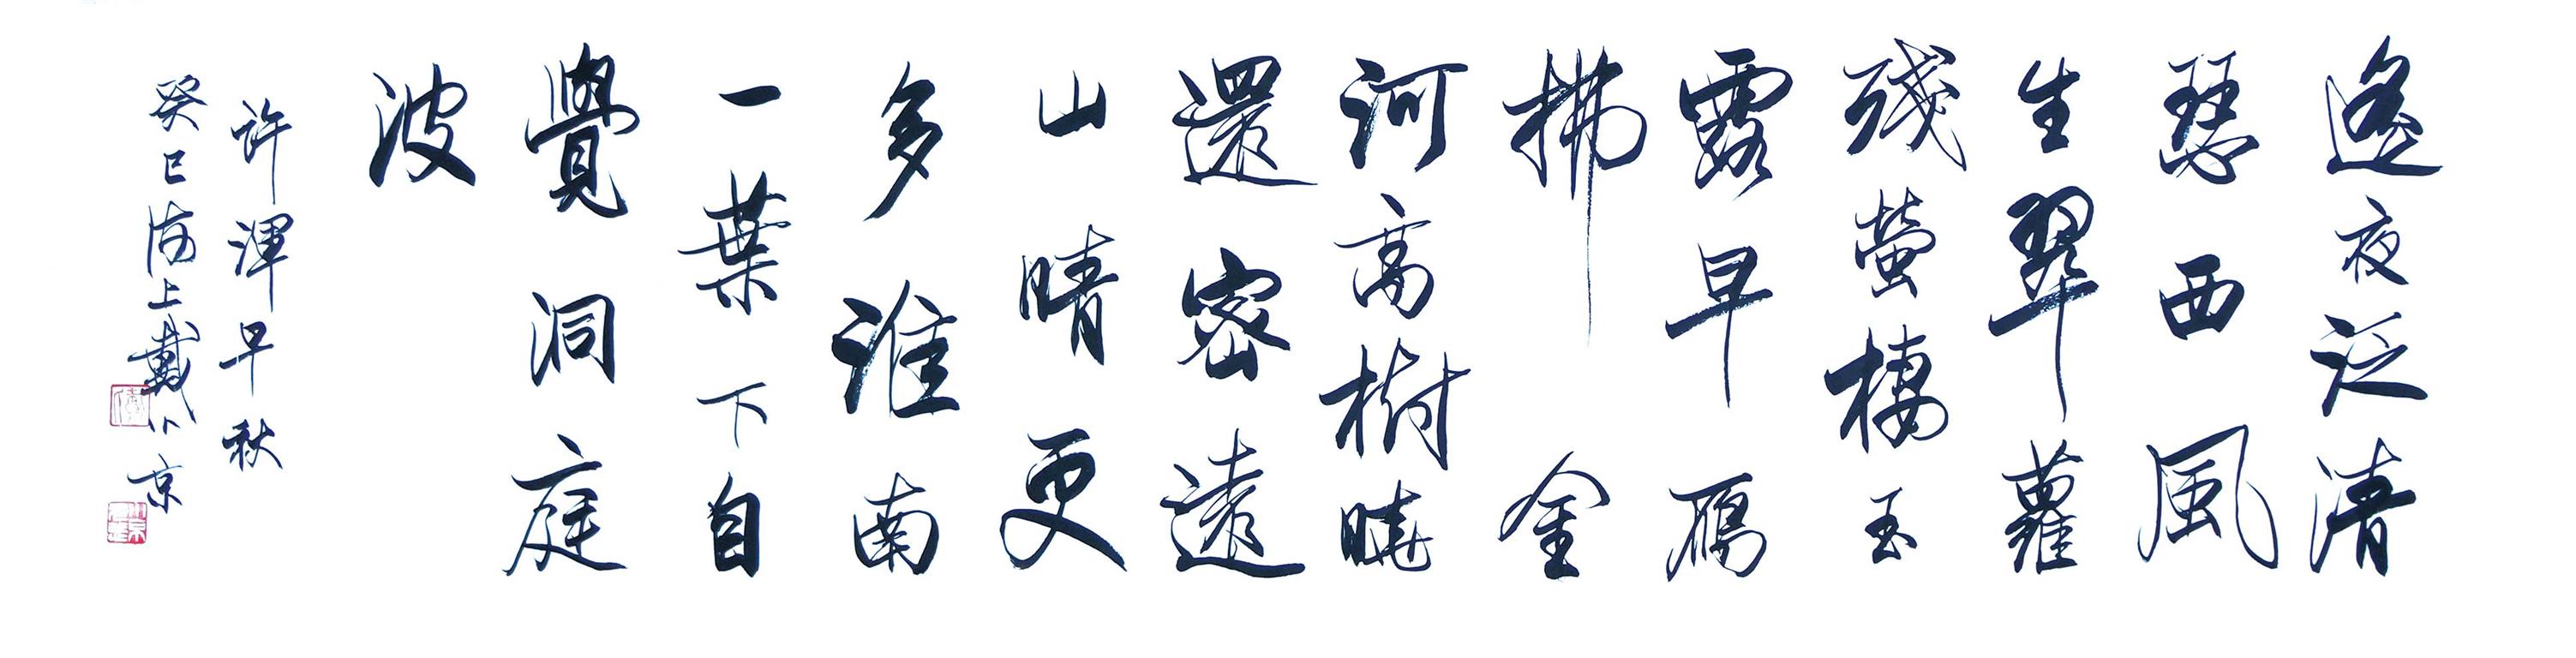 遙夜泛清
瑟西風
生翠蘿
残螢棲玉
露早鴈
拂金
河高樹曉
還密遠
山晴更
多淮南
一葉下自
覺洞庭
波
許渾早秋
癸巳海上戴小京